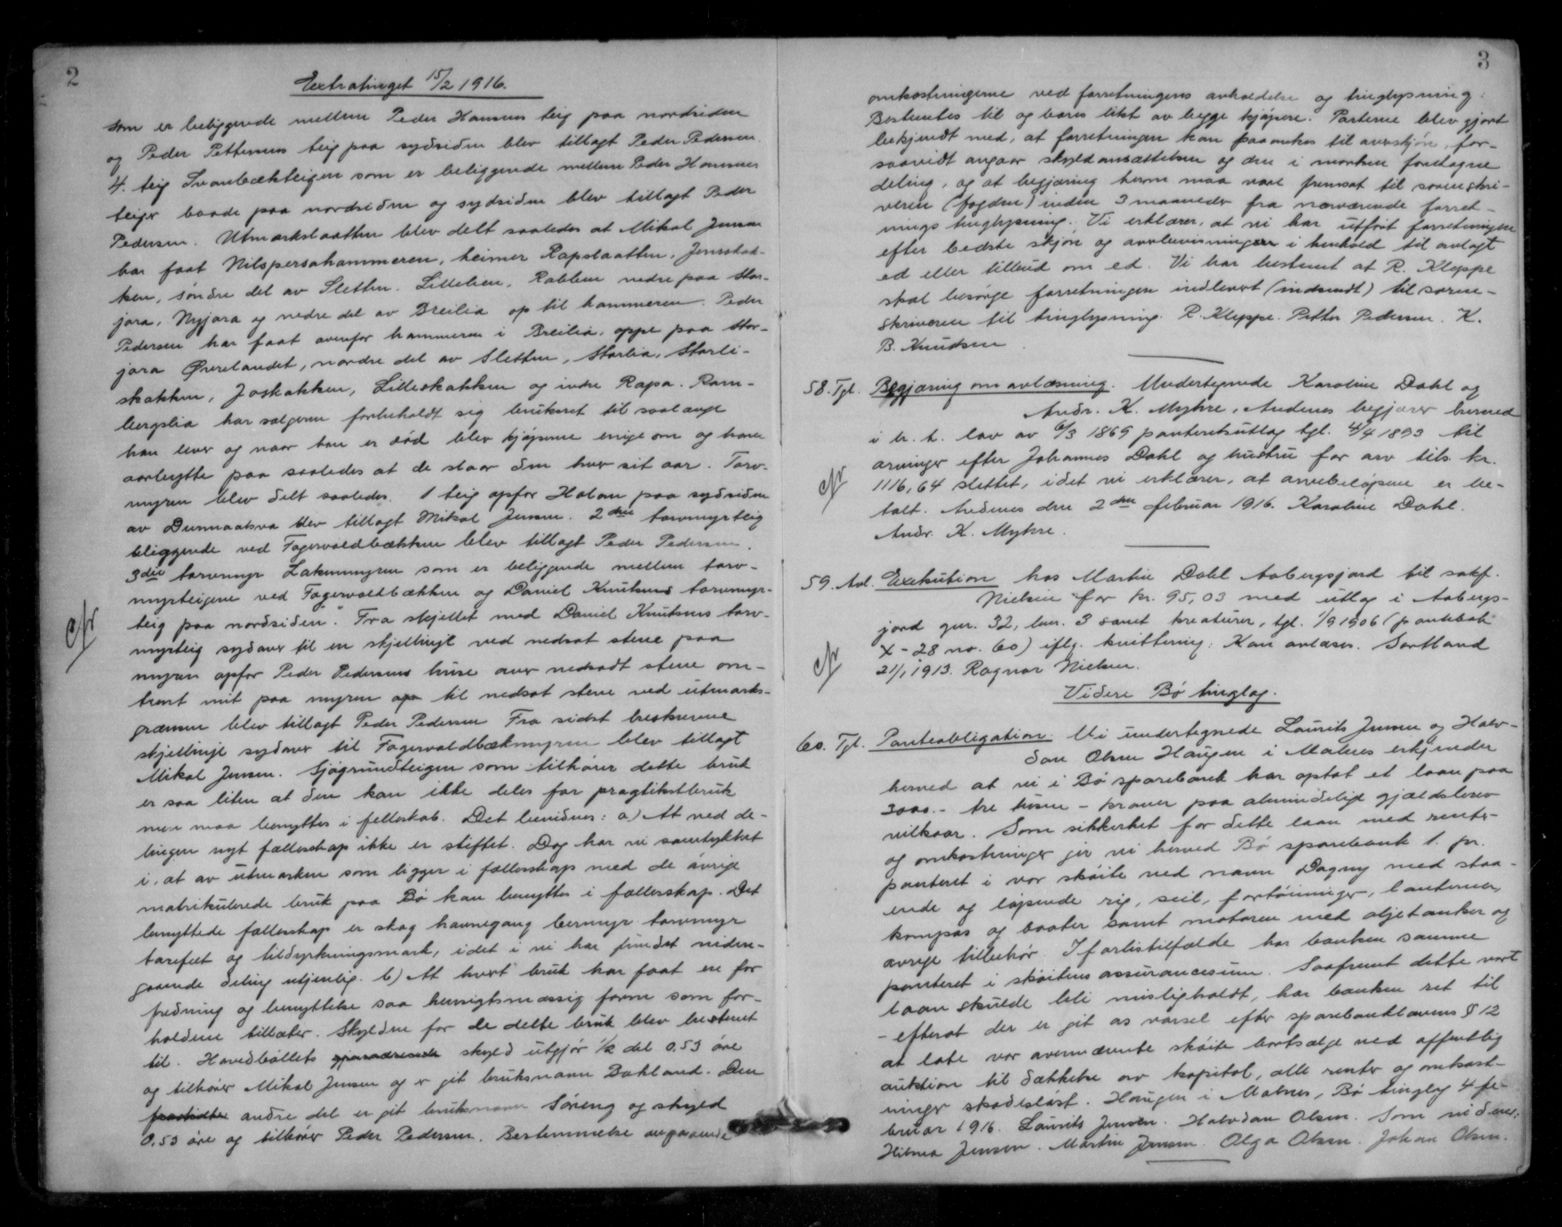 2
Extratinget 15/2 1916.
som er beliggende mellem Peder Hansens teig paa nordsiden
og Peder Pettersens teig paa sydsiden blev tillagt Peder Pedersen
4. teig Svanbækteigen som er beliggende mellem Peder Hansens
teiger baade paa nordsiden og sydsiden blev tillagt Peder
Pedersen. Utmarkslaatten blev delt saaledes at Mikal Jensen
har faat Nilspersahammeren, heimer Rapslaatten,
søndre del av Sletten. Lillelien, Rabben nedre paa Stor-
jora, Nyjora og nedre del av Breilia op til hammeren. Peder
Pedersen har faat ovenfor hammeren i Breilia, oppe paa Stor-
jora Øverlandet, nordre del av Sletten, Storlia, Storli-
skakken, Joskakken, Lilleskakken og indre Rapa. Ram-
bergslia har sælgeren forbeholdt sig bruksret til saalænge
han lever og naar han er død blev kjøperne enige om og have
aarbytte paa saaledes at de slaar den hver sit aar. Torv-
myren blev delt saaledes. 1 teig opfor Holan paa sydsiden
av blev tillagt Mikal Jensen. 2den torvmyrteig
beliggende ved Fagervoldbækken blev tillagt Peder Pedersen.
3die torvmyr Lakemyren som er beliggende mellem torv-
myrteigene ved Fagervoldbækken og Daniel Knutsens torvmyr-
teig paa nordsiden. Fra skjellet med Daniel Knutsens torv-
myrteig sydover til en skjellinje ved nedsat stene paa
myren opfor Peder Pedersens huse over nedsadt stene om-
trent mit paa myren til nedsat stene ved utmarks-
grænsen blev tillagt Peder Pedersen Fra sidst beskrevne
skjellinje sydover til Fagervoldbækmyren blev tillagt
Mikal Jensen. Sjøgrundteigen som tilhører dette bruk
er saa liten at den kan ikke deles for pragtiskbruk
men maa benyttes i felleskab. Det bevidnes: a) At ved de-
lingen nyt fællesskap ikke er stiftet. Dog har vi samtykket
i, at av utmarken som ligger i fællesskap med de øvrige
matrikulerede bruk paa Bø kan benyttes i fællesskap. Det
benyttede fællesskap er skog havnegang bermyr torvmyr
tarefæt og tildyrkningsmark, idet i vi har fundet neden-
gaaende deling utjenlig. b) At hvert bruk har faat en for
fredning og benyttelse saa hensigtsmæssig form som for-
holdene tillater. Skylden for de delte bruk blev bestemt
til. Hovedbøllets skyld utgjør 1/2 del 0.53 øre
og tilhører Mikal Jensen og er git bruksnavn Bakland. Den
andre del er git bruksnavn Søreng og skyld
0.53 øre og tilhører Peder Pedersen. Bestemmelse angaaende
3
omkostningerne ved forretningens avholdelse og tinglysning:
Bestemtes til og bæres likt av begge kjøpere. Parterne blev gjort
bekjendt med, at forretningen kan paaankes til overskjøn, for-
saavidt angaar skyldansættelsen og den i marken foretagne
deling, og at begjæring herom maa være fremsat til sorenskri-
veren (fogden) inden 3 maaneder fra nærværende forret-
nings tinglysning. Vi erklærer, at vi har utført forretningen
efter bedste skjøn og overbevisningen i henhold til avlagt
ed eller tilbud om ed. Vi har bestemt at R. Kleppe
skal besørge forretningen indlevert (indsendt) til soren-
skriveren til tinglysning. R. Kleppe. Petter Pedersen. K.
B. Knudsen.
58. Tgl. Begjæring om avlæsning. Undertegnede Karoline Dahl og
Andr. K. Myhre, Andenes begjærer herved
i h. t. lov av 6/3 1869 panteretsutlæg tgl. 4/4 1893 til
arvinger efter Johannes Dahl og hustru for arv tils. kr.
1116,64 slettet, idet vi erklærer, at arvebeløpene er be-
talt. Andenes den 2den februar 1916. Karoline Dahl.
Andr. K. Myhre.
59. Avl. Exekution hos Martin Dahl Aabergsjord til sakf.
Nielsen for kr. 95,03 med utlæg i Aabergs-
jord gnr. 32, bnr. 3 samt kreaturer, tgl. 1/9 1906 (pantebok
X - 28 no. 60) iflg. kvittering: Kan avlæses. Sortland
21/1 1913. Ragnar Nielsen.
Videre Bø tinglag.
60. Tgl. Panteobligation Vi undertegnede Laurits Jensen og Halv-
dan Olsen Haugen i Malnes erkjender
herved at vi i Bø sparebank har optat et laan paa
3000.- tre tusen - kroner paa almindelige gjældsbrev
vilkaar. Som sikkerhet for dette laan med rente-
og omkostninger gir vi herved Bø sparebank 1. pr.
panteret i vor skøite ved navn Dagny med staa-
ende og løpende rig, seil, fortøininger, lanterner,
kompas og baater samt motoren med oljetanker og
øvrige tilbehør. I forlistilfælde har banken samme
panteret i skøitens assurancesum. Saafremt dette vort
laan skulde bli misligholdt, har banken ret til
- efterat der er git os varsel efter sparebanklovens § 12
at late vor ovennævnte skøite bortsælge ved offentlig
auktion til dækkelse av kapital, alle renter og omkost-
ninger skadesløst. Haugen i Malnes, Bø tinglag 4 fe-
bruar 1916. Laurits Jensen. Halvdan Olsen. Som vidner:
Hilmea Jensen. Martin Jensen. Olga Olsen. Johan Olsen.